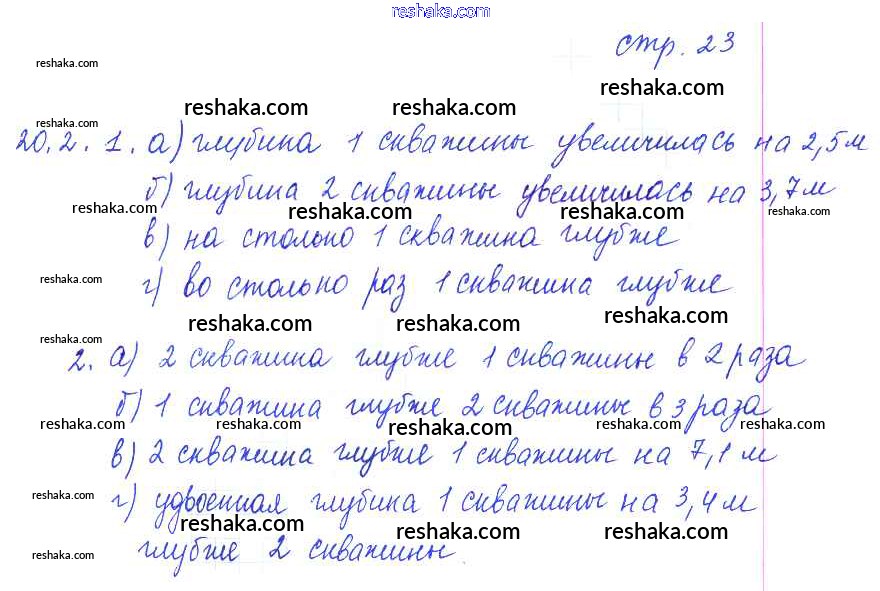 reshaka.com
стр. 23
reshaka.com
reshaka.com
reshaka.com reshaka.com
reshaka.com
20.2. 1. а) глубина 1 скважины увеличилась на 2,5 м
б) глубина 2 скважины увеличилась на 3,7 м
reshaka.com reshaka.com reshaka.com reshaka.com
в) на столько 1 скважина глубже
reshaka.com
г) во столько раз 1 скважина глубже
reshaka.com reshaka.com reshaka.com
reshaka.com
2. а) 2 скважина глубже 1 скважины в 2 раза
б) 1 скважина глубже 2 скважины в 3 раза
reshaka.com reshaka.com reshaka.com reshaka.com reshaka.com
в) 2 скважина глубже 1 скважины на 7,1 м
г) удвоенная глубина 1 скважины на 3,4 м
reshaka.com
reshaka.com reshaka.com reshaka.com
глубже 2 скважины
reshaka.com